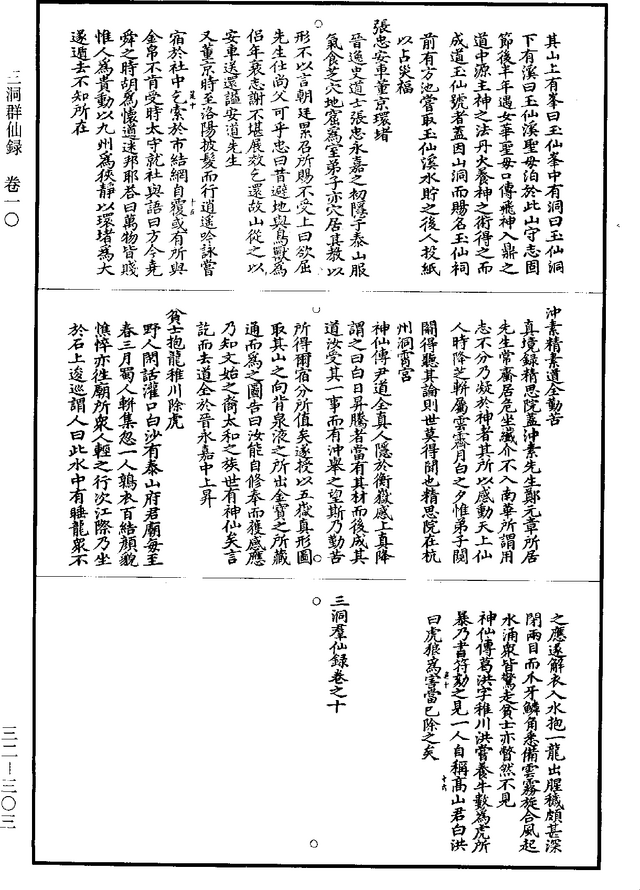 三洞群仙録　卷一〇
三二—三〇三
其山上有峯曰玉仙峯中有洞曰玉仙洞
下有溪曰玉仙溪聖母泊於此山守志固
節後半年遇女華聖母口傳飛神入鼎之
道中源主神之法丹火養神之術得之而
成道玉仙號者蓋因山洞而賜名玉仙祠
前有方池嘗取玉仙溪水貯之後人投紙
以占災福
張忠安車董京環堵
晉逸史道士張忠永嘉之初隱于泰山服
氣食芝穴地窟爲室弟子亦穴居其教以
形不以言朝廷累召所賜不受上曰欲屈
先生仕尚父可乎忠曰昔避地與鳥獸爲
侶年衰志謝不堪展效乞還故山從之以
安車送還謚安道先生
又董京時至洛陽披髮而行逍遙吟詠嘗
宿於社中乞索於市結網自覆或有所與
金帛不肯受時太守就社與語曰方今堯
舜之時胡爲懷道迷邦耶答曰萬物皆賤
惟人爲貴動以九州爲狹靜以環堵爲大
遂遁去不知所在
沖素精素道全勤苦
真境録精思院蓋沖素先生鄭元章所居
先生常齋居危坐纖介不入南華所謂用
志不分乃凝於神者其所以感動天上仙
人時降芝軿屬雲霽月白之夕惟弟子閱
關得聽其論則世莫得聞也精思院在杭
州洞霄宮
神仙傳尹道全真人隱於衡嶽感上真降
謂之曰白日昇騰者當有其材而後成其
道汝受其一事而有沖舉之望斯乃勤苦
所得爾宿分所值矣遂授以五嶽真形圖
取其山之向背泉液之所出金寶之所藏
通而爲之圖告曰汝能自修奉而獲感應
乃知文始之裔太和之族世有神仙矣言
訖而去道全於晉永嘉中上昇
貧士抱龍稚川除虎
野人閑話灌口白沙有泰山府君廟每至
春三月蜀人軿集忽一人鶉衣百結顔貌
憔悴亦往廟所衆人輕之行次江際乃坐
於石上逡巡謂人曰此水中有睡龍衆不
之應遂解衣入水抱一龍出腥穢頗甚深
閉兩目而爪牙鱗角悉備雲霧旋合風起
水涌衆皆驚走貧士亦瞥然不見
神仙傳葛洪字稚川洪嘗養牛數爲虎所
暴乃書符劾之見一人自稱高山君白洪
曰虎狼爲害當已除之矣
三洞羣仙録卷之十